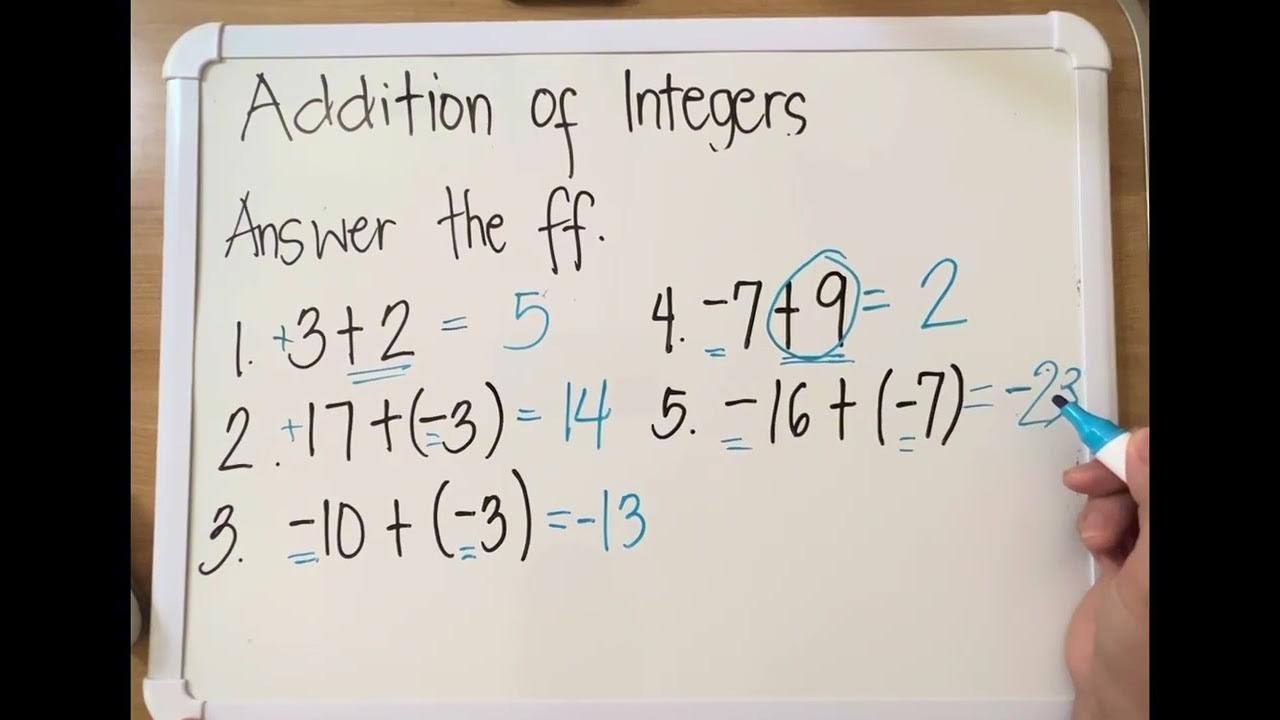 Addition of Integers
Answer the ff.
1. +3+2 = 5
2. +17+(-3) = 14
3. -10+(-3) = -13
4. -7+9 = 2
5. -16+(-7) = -23